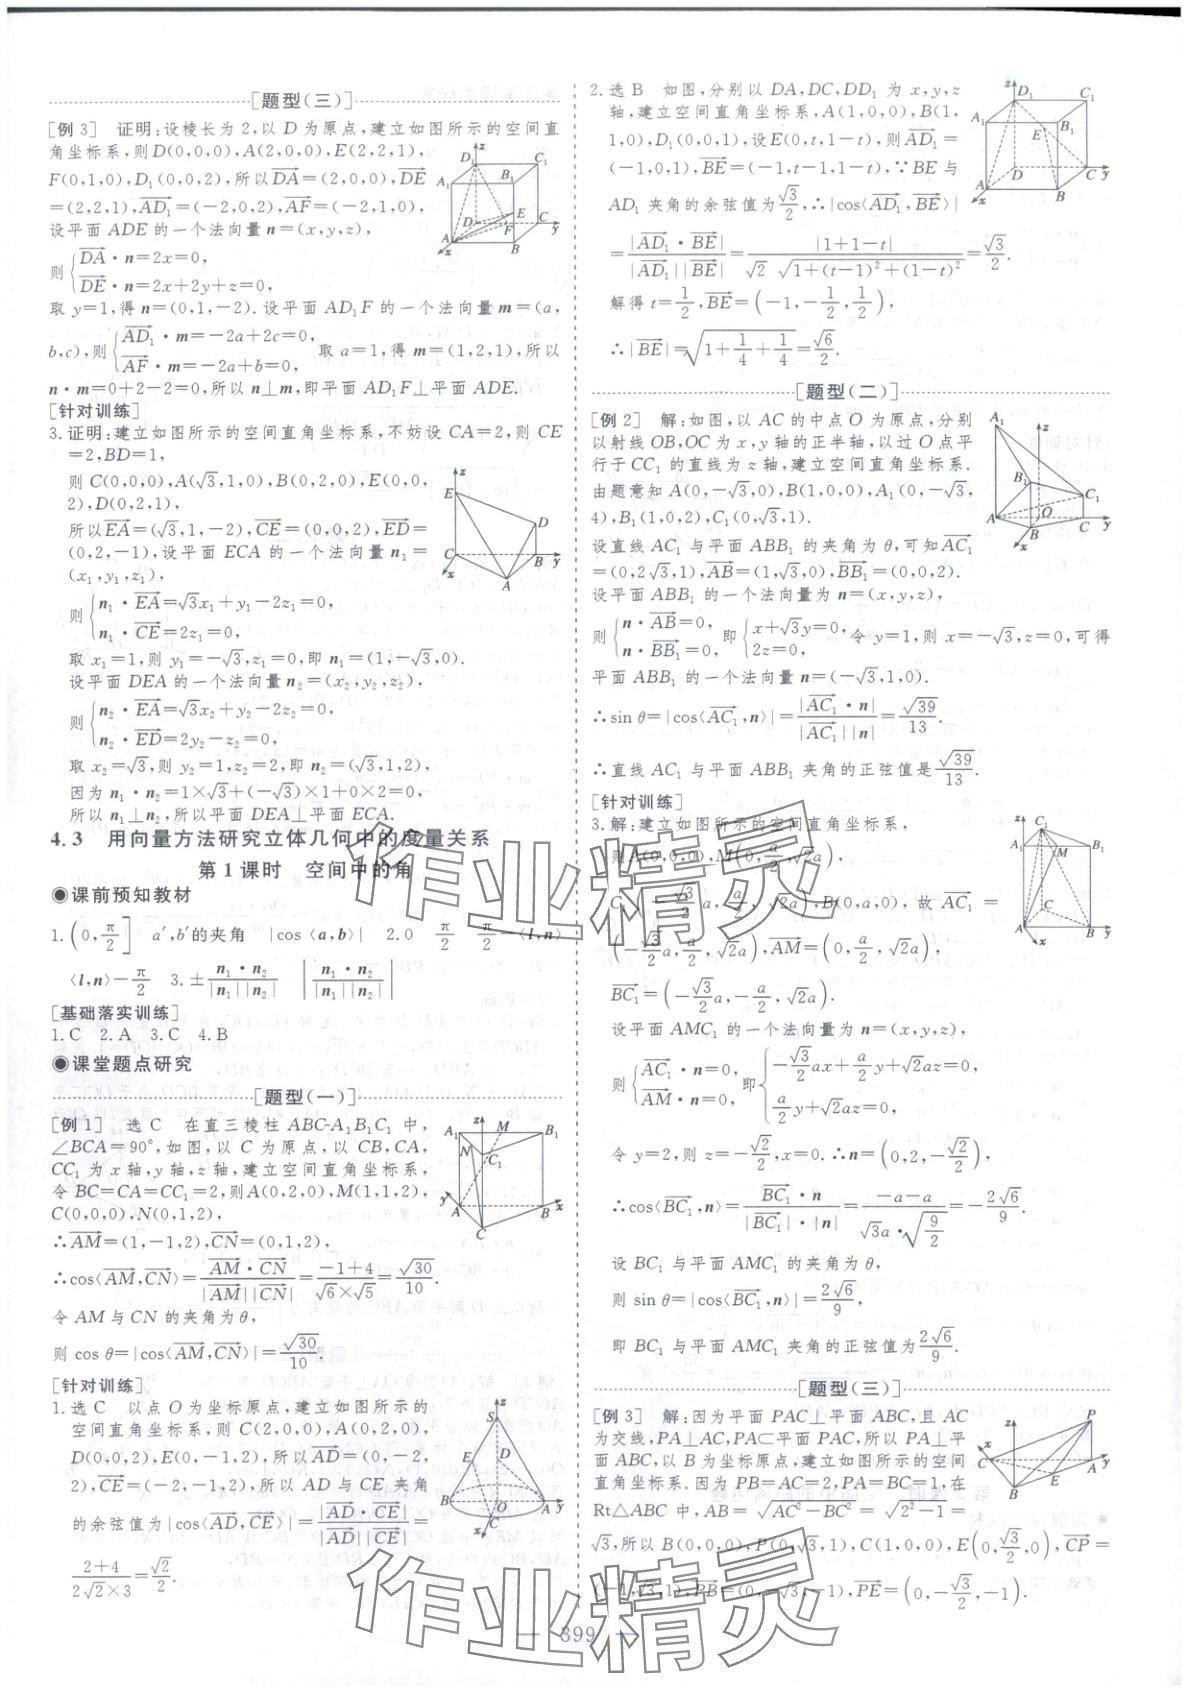 [题型(三)]
[例3] 证明:设棱长为2,以D为原点,建立如图所示的空间直
角坐标系,则D(0,0,0),A(2,0,0),E(2,2,1),
F(0,1,0),D₁(0,0,2),所以$\overrightarrow{DA}$=(2,0,0),$\overrightarrow{DE}$
=(2,2,1),$\overrightarrow{AD_1}$=(-2,0,2),$\overrightarrow{AF}$=(-2,1,0),
设平面ADE的一个法向量n=(x,y,z),
则$\begin{cases}\overrightarrow{DA}·n=2x=0,\\ \overrightarrow{DE}·n=2x+2y+z=0,\end{cases}$
取y=1,得n=(0,1,-2).设平面AD₁F的一个法向量m=(a,
b,c),则$\begin{cases}\overrightarrow{AD_1}·m=-2a+2c=0,\\ \overrightarrow{AF}·m=-2a+b=0,\end{cases}$取a=1,得m=(1,2,1),所以
n·m=0+2-2=0,所以n⊥m,即平面AD₁F⊥平面ADE.
[针对训练]
3.证明:建立如图所示的空间直角坐标系,不妨设CA=2,则CE
=2,BD=1,
则C(0,0,0),A(√3,1,0),B(0,2,0),E(0,0,
2),D(0,2,1),
所以$\overrightarrow{EA}$=(√3,1,-2),$\overrightarrow{CE}$=(0,0,2),$\overrightarrow{ED}$=
(0,2,-1),设平面ECA的一个法向量n₁=
(x₁,y₁,z₁),
则$\begin{cases}n_1·\overrightarrow{EA}=\sqrt{3}x_1+y_1-2z_1=0,\\ n_1·\overrightarrow{CE}=2z_1=0,\end{cases}$
取x₁=1,则y₁=-√3,z₁=0,即n₁=(1,-√3,0).
设平面DEA的一个法向量n₂=(x₂,y₂,z₂),
则$\begin{cases}n_2·\overrightarrow{EA}=\sqrt{3}x_2+y_2-2z_2=0,\\ n_2·\overrightarrow{ED}=2y_2-z_2=0,\end{cases}$
取x₂=√3,则y₂=1,z₂=2,即n₂=(√3,1,2),
因为n₁·n₂=1×√3+(-√3)×1+0×2=0,
所以n₁⊥n₂,所以平面DEA⊥平面ECA.
4.3 用向量方法研究立体几何中的度量关系
第1课时 空间中的角
◉课前预知教材
1.$\left(0,\frac{π}{2}\right]$ a′,b′的夹角 |cos⟨a,b⟩| 2.0 $\frac{π}{2}$ $\frac{π}{2}$-⟨l,n⟩
⟨l,n⟩-$\frac{π}{2}$ 3.±$\frac{n_1·n_2}{|n_1||n_2|}$ $\left|\frac{n_1·n_2}{|n_1||n_2|}\right|$
[基础落实训练]
1.C 2.A 3.C 4.B
◉课堂题点研究
[题型(一)]
[例1] 选C 在直三棱柱ABC-A₁B₁C₁中,
∠BCA=90°,如图,以C为原点,以CB,CA,
CC₁为x轴,y轴,z轴,建立空间直角坐标系,
令BC=CA=CC₁=2,则A(0,2,0),M(1,1,2),
C(0,0,0),N(0,1,2),
∴$\overrightarrow{AM}$=(1,-1,2),$\overrightarrow{CN}$=(0,1,2),
∴cos⟨$\overrightarrow{AM}$,$\overrightarrow{CN}$⟩=$\frac{\overrightarrow{AM}·\overrightarrow{CN}}{|\overrightarrow{AM}||\overrightarrow{CN}|}$=$\frac{-1+4}{\sqrt{6}×\sqrt{5}}$=$\frac{\sqrt{30}}{10}$.
令AM与CN的夹角为θ,
则cos θ=|cos⟨$\overrightarrow{AM}$,$\overrightarrow{CN}$⟩|=$\frac{\sqrt{30}}{10}$.
[针对训练]
1.选C 以点O为坐标原点,建立如图所示的
空间直角坐标系,则C(2,0,0),A(0,2,0),
D(0,0,2),E(0,-1,2),所以$\overrightarrow{AD}$=(0,-2,
2),$\overrightarrow{CE}$=(-2,-1,2),所以AD与CE夹角
的余弦值为|cos⟨$\overrightarrow{AD}$,$\overrightarrow{CE}$⟩|=$\frac{|\overrightarrow{AD}·\overrightarrow{CE}|}{|\overrightarrow{AD}||\overrightarrow{CE}|}$=
$\frac{2+4}{2\sqrt{2}×3}$=$\frac{\sqrt{2}}{2}$.
2.选B 如图,分别以DA,DC,DD₁为x,y,z
轴,建立空间直角坐标系,A(1,0,0),B(1,
1,0),D₁(0,0,1),设E(0,t,1-t),则$\overrightarrow{AD_1}$=
(-1,0,1),$\overrightarrow{BE}$=(-1,t-1,1-t),∵BE与
AD₁夹角的余弦值为$\frac{\sqrt{3}}{2}$,∴|cos⟨$\overrightarrow{AD_1}$,$\overrightarrow{BE}$⟩|
=$\frac{|\overrightarrow{AD_1}·\overrightarrow{BE}|}{|\overrightarrow{AD_1}||\overrightarrow{BE}|}$=$\frac{|1+1-t|}{\sqrt{2}\sqrt{1+(t-1)^2+(1-t)^2}}$=$\frac{\sqrt{3}}{2}$.
解得t=$\frac{1}{2}$,$\overrightarrow{BE}$=$\left(-1,-\frac{1}{2},\frac{1}{2}\right)$,
∴|$\overrightarrow{BE}$|=$\sqrt{1+\frac{1}{4}+\frac{1}{4}}$=$\frac{\sqrt{6}}{2}$.
[题型(二)]
[例2] 解:如图,以AC的中点O为原点,分别
以射线OB,OC为x,y轴的正半轴,以过O点平
行于CC₁的直线为z轴,建立空间直角坐标系.
由题意知A(0,-√3,0),B(1,0,0),A₁(0,-√3,
4),B₁(1,0,2),C₁(0,√3,1).
设直线AC₁与平面ABB₁的夹角为θ,可知$\overrightarrow{AC_1}$
=(0,2√3,1),$\overrightarrow{AB}$=(1,√3,0),$\overrightarrow{BB_1}$=(0,0,2).
设平面ABB₁的一个法向量为n=(x,y,z),
则$\begin{cases}n·\overrightarrow{AB}=0,\\ n·\overrightarrow{BB_1}=0,\end{cases}$即$\begin{cases}x+\sqrt{3}y=0,\\ 2z=0,\end{cases}$令y=1,则x=-√3,z=0,可得
平面ABB₁的一个法向量n=(-√3,1,0).
∴sin θ=|cos⟨$\overrightarrow{AC_1}$,n⟩|=$\frac{|\overrightarrow{AC_1}·n|}{|\overrightarrow{AC_1}||n|}$=$\frac{\sqrt{39}}{13}$.
∴直线AC₁与平面ABB₁夹角的正弦值是$\frac{\sqrt{39}}{13}$.
[针对训练]
3.解:建立如图所示的空间直角坐标系,
则A(0,0,0),M$\left(0,\frac{a}{2},\sqrt{2}a\right)$,
C₁$\left(-\frac{\sqrt{3}}{2}a,\frac{a}{2},\sqrt{2}a\right)$,B(0,a,0),故$\overrightarrow{AC_1}$=
$\left(-\frac{\sqrt{3}}{2}a,\frac{a}{2},\sqrt{2}a\right)$,$\overrightarrow{AM}$=$\left(0,\frac{a}{2},\sqrt{2}a\right)$,
$\overrightarrow{BC_1}$=$\left(-\frac{\sqrt{3}}{2}a,-\frac{a}{2},\sqrt{2}a\right)$.
设平面AMC₁的一个法向量为n=(x,y,z),
则$\begin{cases}\overrightarrow{AC_1}·n=0,\\ \overrightarrow{AM}·n=0,\end{cases}$即$\begin{cases}-\frac{\sqrt{3}}{2}ax+\frac{a}{2}y+\sqrt{2}az=0,\\ \frac{a}{2}y+\sqrt{2}az=0,\end{cases}$
令y=2,则z=-$\frac{\sqrt{2}}{2}$,x=0.∴n=$\left(0,2,-\frac{\sqrt{2}}{2}\right)$,
∴cos⟨$\overrightarrow{BC_1}$,n⟩=$\frac{\overrightarrow{BC_1}·n}{|\overrightarrow{BC_1}|·|n|}$=$\frac{-a-a}{\sqrt{3}a·\sqrt{\frac{9}{2}}}$=-$\frac{2\sqrt{6}}{9}$.
设BC₁与平面AMC₁的夹角为θ,
则sin θ=|cos⟨$\overrightarrow{BC_1}$,n⟩|=$\frac{2\sqrt{6}}{9}$,
即BC₁与平面AMC₁夹角的正弦值为$\frac{2\sqrt{6}}{9}$.
[题型(三)]
[例3] 解:因为平面PAC⊥平面ABC,且AC
为交线,PA⊥AC,PA⊂平面PAC,所以PA⊥平
面ABC,以B为坐标原点,建立如图所示的空间
直角坐标系.因为PB=AC=2,PA=BC=1,在
Rt△ABC中,AB=$\sqrt{AC^2-BC^2}$=$\sqrt{2^2-1}$=
√3,所以B(0,0,0),P(0,√3,1),C(1,0,0),E$\left(0,\frac{\sqrt{3}}{2},0\right)$,$\overrightarrow{CP}$=
(-1,√3,1),$\overrightarrow{PB}$=(0,-√3,-1),$\overrightarrow{PE}$=$\left(0,-\frac{\sqrt{3}}{2},-1\right)$.
399
作业精灵
作业精灵